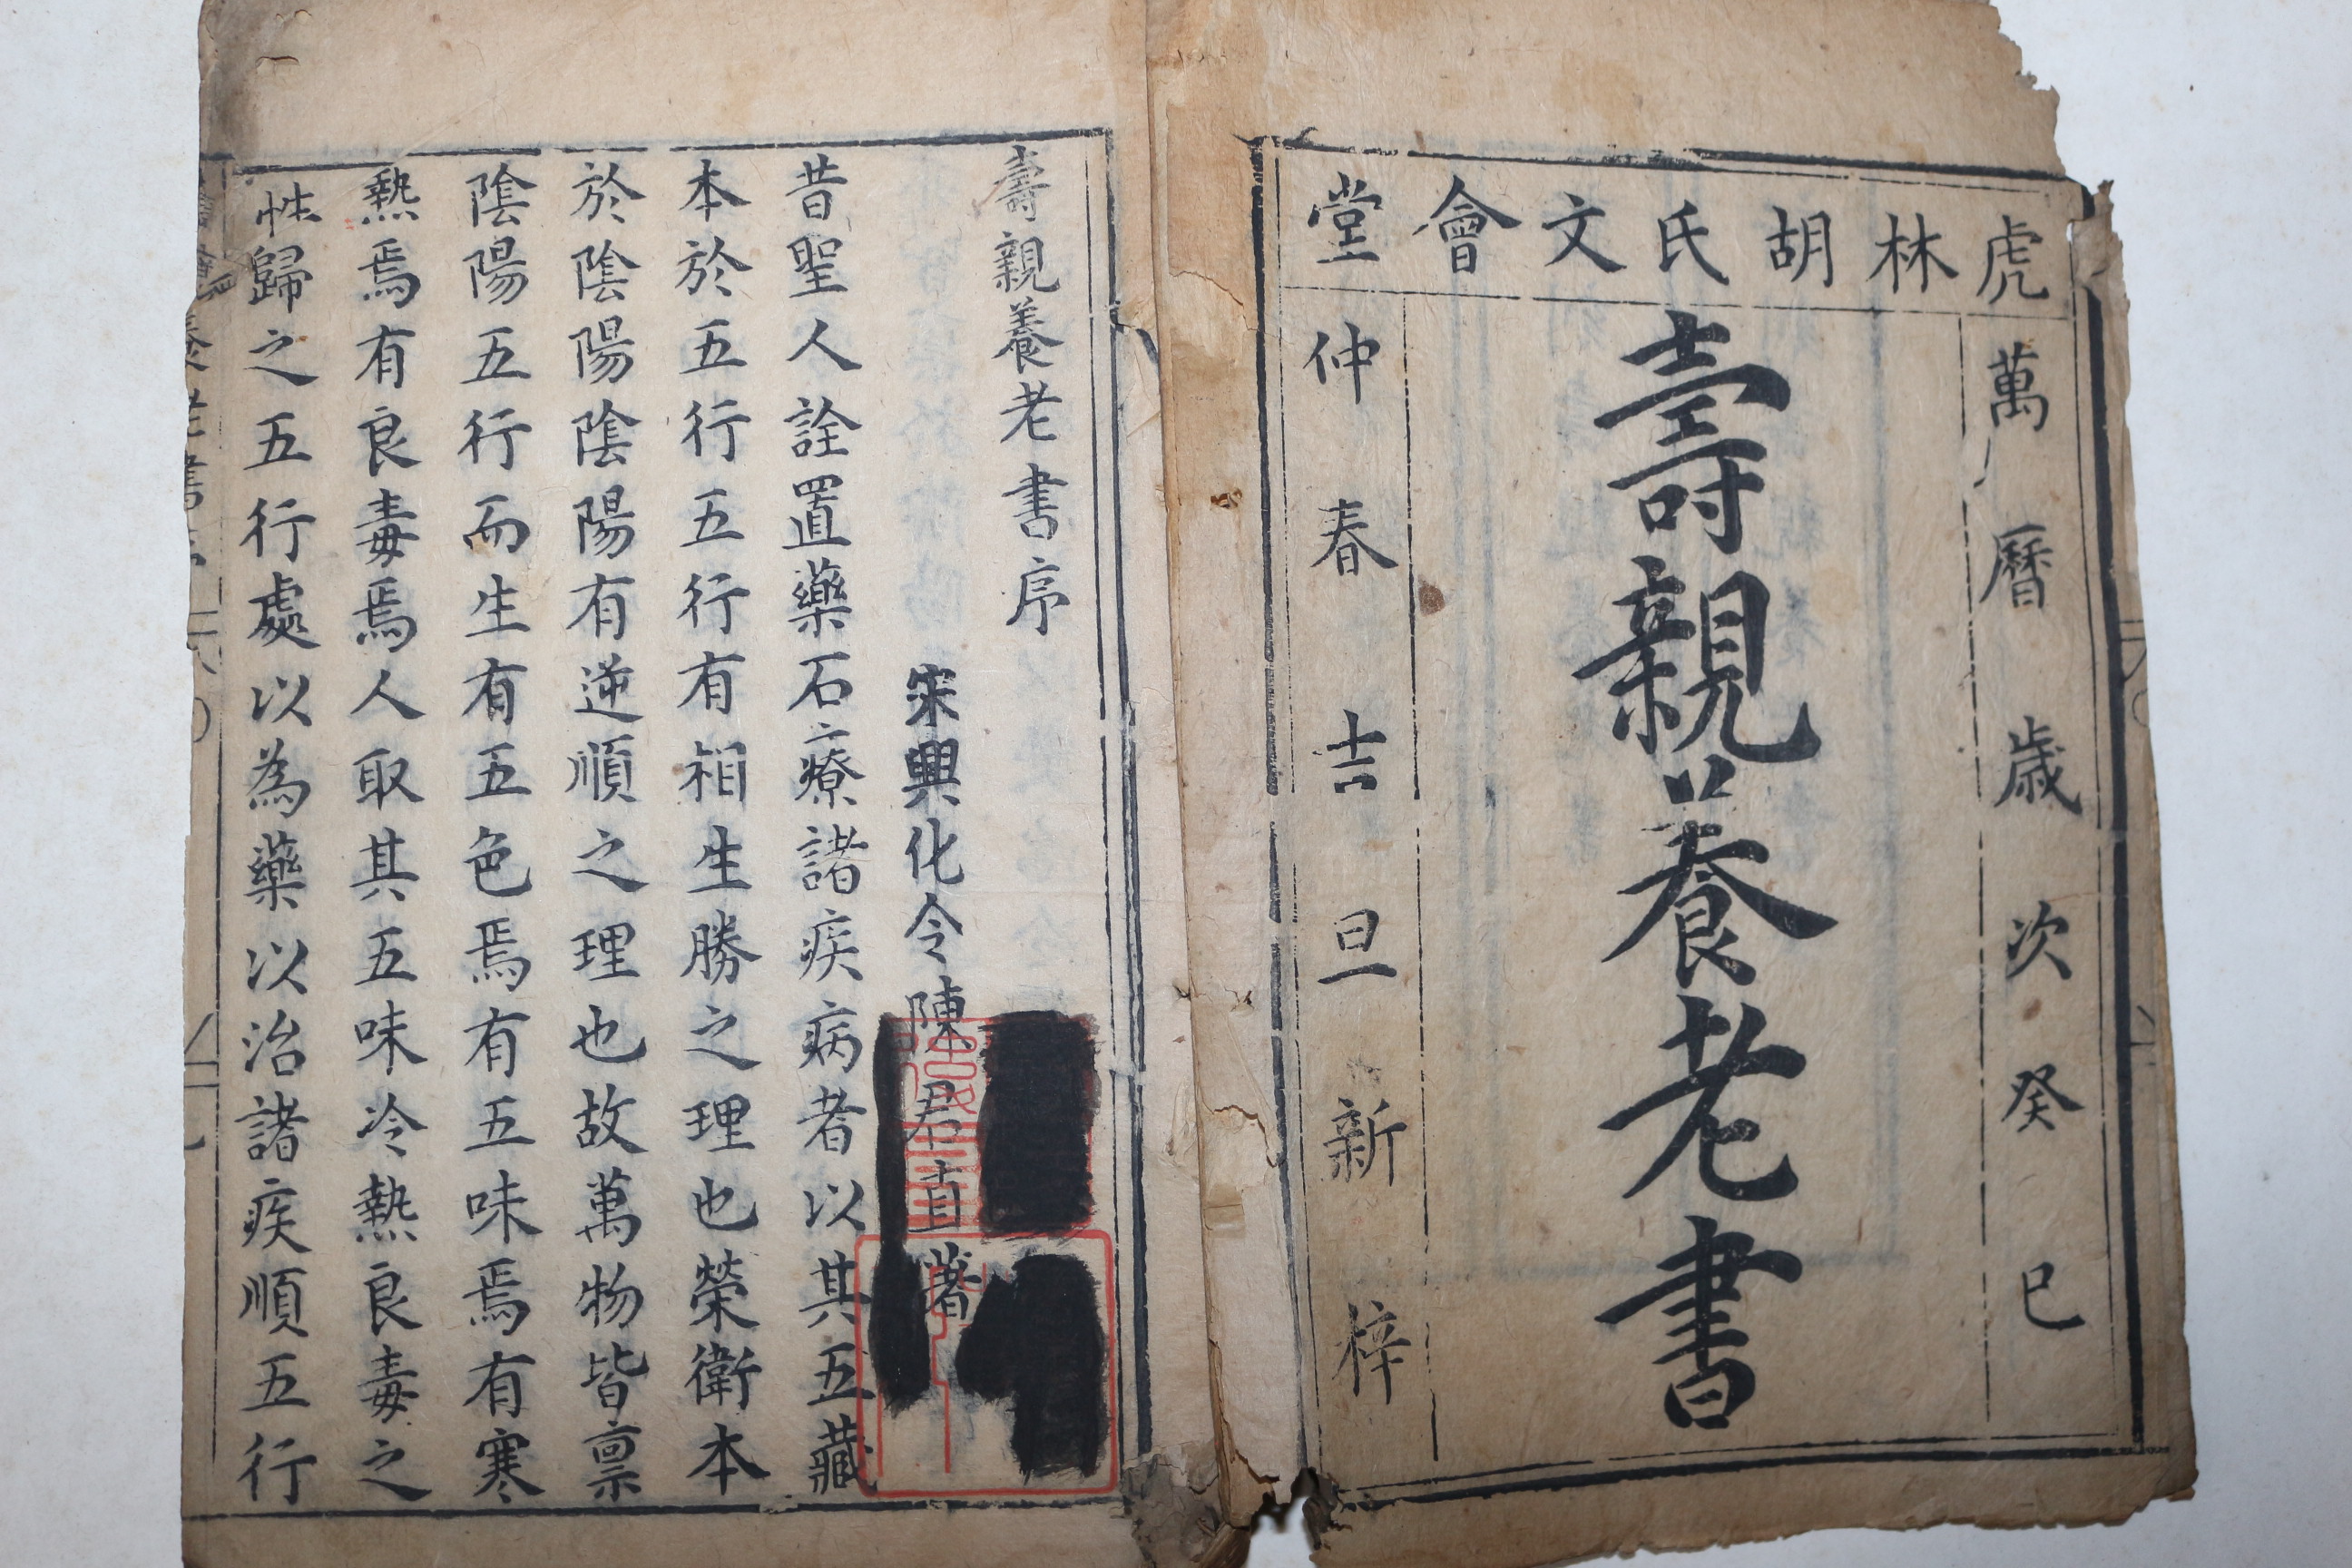 虎林胡氏文會堂
萬曆歲次癸巳
壽親養老書
仲春吉旦新梓
壽親養老書序
宋興化令陳君直著
昔聖人詮置藥石療諸疾病者以其五藏
本於五行五行有相生勝之理也榮衛本
於陰陽陰陽有逆順之理也故萬物皆禀
陰陽五行而生有五色焉有五味焉有寒
熱焉有良毒焉人取其五味冷熱良毒之
性歸之五行處以為藥以治諸疾順五行